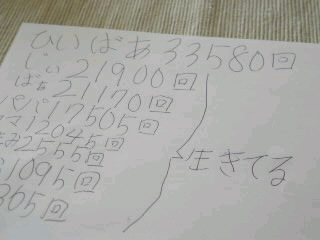 ひいばあ33580回
じい21900回
ばあ21170回
パパ17505回
ママ12045回
2555回
1095回
365回
生きてる